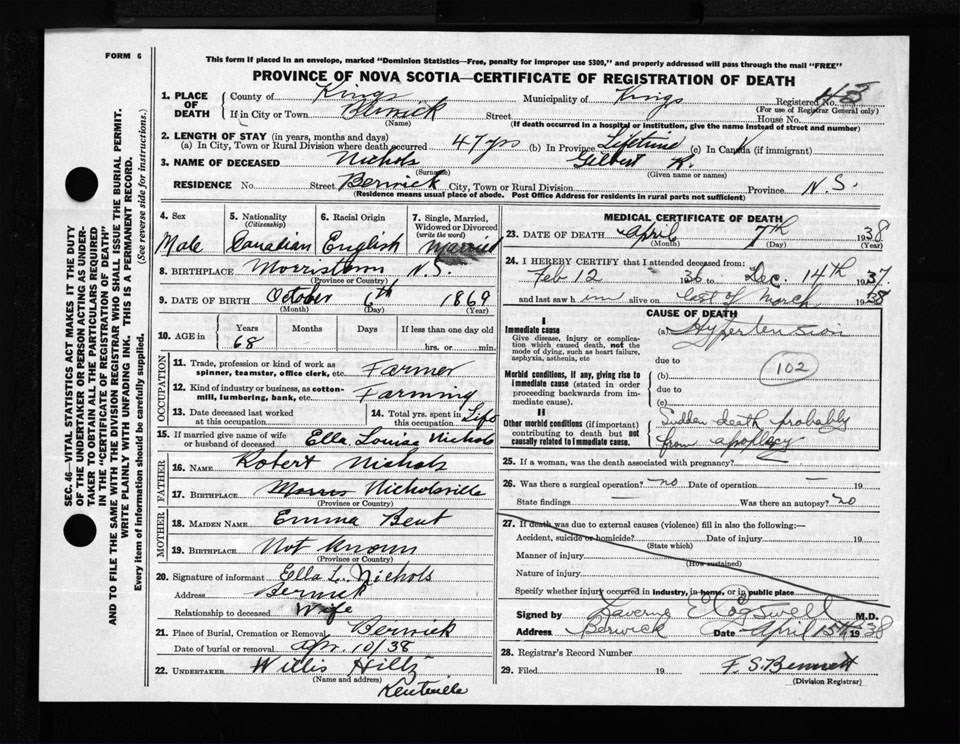 FORM 6
This form if placed in an envelope, marked "Dominion Statistics—Free, penalty for improper use $300," and properly addressed will pass through the mail "FREE"
PROVINCE OF NOVA SCOTIA—CERTIFICATE OF REGISTRATION OF DEATH
SEC. 46—VITAL STATISTICS ACT MAKES IT THE DUTY
OF THE UNDERTAKER OR PERSON ACTING AS UNDER-
TAKER TO OBTAIN ALL THE PARTICULARS REQUIRED
IN THE "CERTIFICATE OF REGISTRATION OF DEATH"
AND TO FILE THE SAME WITH THE DIVISION REGISTRAR WHO SHALL ISSUE THE BURIAL PERMIT.
WRITE PLAINLY WITH UNFADING INK. THIS IS A PERMANENT RECORD.
Every item of information should be carefully supplied. (See reverse side for instructions.)
1. PLACE OF DEATH
County of Kings Municipality of Kings Registered No.
(For use of Registrar General only)
If in City or Town Berwick Street House No.
(Name) (If death occurred in a hospital or institution, give the name instead of street and number)
2. LENGTH OF STAY (in years, months and days)
(a) In City, Town or Rural Division where death occurred 47 yrs (b) In Province Lifetime (c) In Canada (if immigrant)
3. NAME OF DECEASED Nichols Gilbert R.
(Surname) (Given name or names)
RESIDENCE No. Street Berwick City, Town or Rural Division Province N.S.
(Residence means usual place of abode. Post Office Address for residents in rural parts not sufficient)
4. Sex Male
5. Nationality (Citizenship) Canadian
6. Racial Origin English
7. Single, Married, Widowed or Divorced (write the word) Married
8. BIRTHPLACE Morristown N.S.
(Province or Country)
9. DATE OF BIRTH October 6th 1869
(Month) (Day) (Year)
10. AGE in Years Months Days If less than one day old
68 - hrs. or min.
OCCUPATION
11. Trade, profession or kind of work as spinner, teamster, office clerk, etc. Farmer
12. Kind of industry or business, as cotton-mill, lumbering, bank, etc. Farming
13. Date deceased last worked at this occupation
14. Total yrs. spent in this occupation Life
15. If married give name of wife or husband of deceased Ella Louise Nichols
FATHER
16. NAME Robert Nichols
17. BIRTHPLACE Morris Nicholsville
(Province or Country)
MOTHER
18. MAIDEN NAME Emma Bent
19. BIRTHPLACE Not known
(Province or Country)
20. Signature of informant Ella L. Nichols
Address Berwick
Relationship to deceased Wife
21. Place of Burial, Cremation or Removal Berwick
Date of burial or removal Apr. 10/38
22. UNDERTAKER Willis Hiltz
(Name and address)
Kentville
MEDICAL CERTIFICATE OF DEATH
23. DATE OF DEATH April 7th 1938
(Month) (Day) (Year)
24. I HEREBY CERTIFY that I attended deceased from:
Feb 12 36 to Dec. 14th 1937
and last saw him alive on last of March 1938
CAUSE OF DEATH
I
Immediate cause (a) Hypertension
Give disease, injury or complica-
tion which caused death, not the
mode of dying, such as heart failure,
asphyxia, asthenia, etc due to
Morbid conditions, if any, giving rise to (b) 102
immediate cause (stated in order due to
proceeding backwards from
immediate cause). (c)
II
Other morbid conditions (if important)
contributing to death but not
causally related to immediate cause.
Sudden death probably
from apoplexy
25. If a woman, was the death associated with pregnancy?
26. Was there a surgical operation? no Date of operation — 19
State findings — Was there an autopsy? no
27. If death was due to external causes (violence) fill in also the following:—
Accident, suicide or homicide? Date of injury 19
(State which)
Manner of injury
(How sustained)
Nature of injury
Specify whether injury occurred in Industry, in home, or in public place
Signed by Laverne E Cogswell M.D.
Address Berwick Date April 15th 1938
28. Registrar's Record Number
29. Filed 19 F. S. Bennett
(Division Registrar)